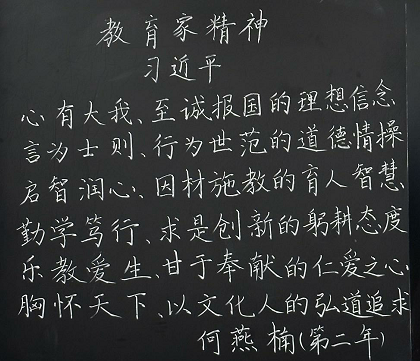 教育家精神
习近平
心有大我、至诚报国的理想信念
言为士则、行为世范的道德情操
启智润心、因材施教的育人智慧
勤学笃行、求是创新的躬耕态度
乐教爱生、甘于奉献的仁爱之心
胸怀天下、以文化人的弘道追求
何燕楠(第二年)